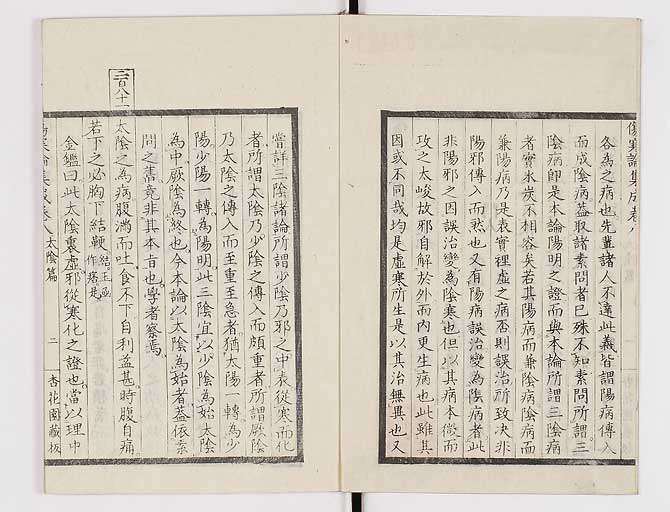 傷寒論集成卷八
各為之病也先輩諸人不達此義皆謂陽病傳入
而成陰病蓋取諸素問者已殊不知素問所謂三
陰病即是本論陽明之證而與本論所謂三陰病
者實氷炭不相容矣若其陽病而兼陰病陰病而
兼陽病乃是表實裡虛之病否則誤治所致決非
陽邪傳入而然也又有陽病誤治變為陰病者此
非陽邪之因誤治變為陰寒也但以其病本微而
攻之太峻故邪自解於外而內更生病也此雖其
因或不同哉均是虛寒所生是以其治無異也又
嘗詳三陰諸論所謂少陰乃邪之中表從寒而化
者所謂太陰乃少陰之傳入而頗重者所謂厥陰
乃太陰之傳入而至重至急者猶太陽一轉為少
陽少陽一轉為陽明此三陰宜以少陰為始太陰
為中厥陰為終也今本論以太陰為始者蓋依素
問之舊竟非其本旨也學者察焉
二百八十一
太陰之為病腹滿而吐食不下自利益甚時腹自痛
若下之必胸下結鞕結王並作痞是
金鑑曰此太陰裏虛邪從寒化之證也當以理中
傷寒論集成卷八 太陰篇 二 杏花園藏板